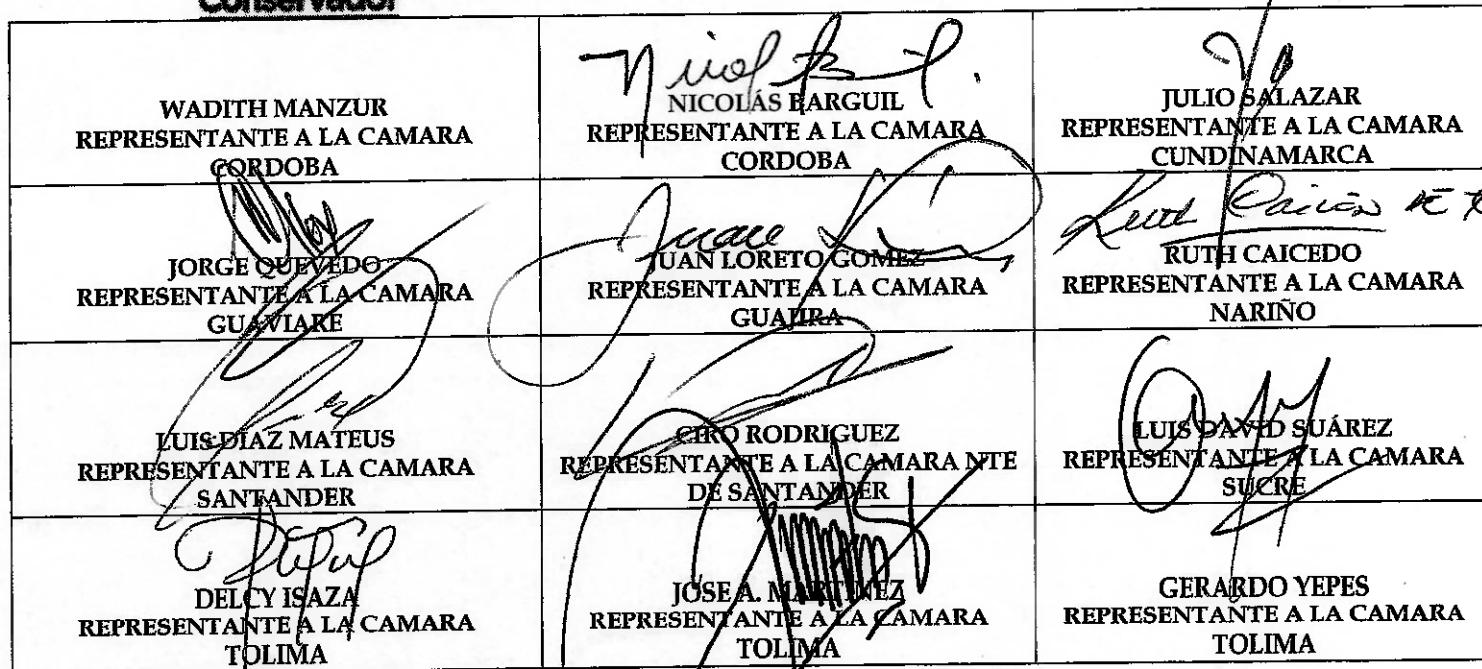 Conservador
WADITH MANZUR
REPRESENTANTE A LA CAMARA
CORDOBA
NICOLÁS BARGUIL
REPRESENTANTE A LA CAMARA
CORDOBA
JULIO SALAZAR
REPRESENTANTE A LA CAMARA
CUNDINAMARCA
JORGE QUEVEDO
REPRESENTANTE A LA CAMARA
GUAVIARE
Juan
JUAN LORETO GOMEZ
REPRESENTANTE A LA CAMARA
GUAJIRA
Ruth Caicedo de
RUTH CAICEDO
REPRESENTANTE A LA CAMARA
NARIÑO
LUIS DIAZ MATEUS
REPRESENTANTE A LA CAMARA
SANTANDER
CIRO RODRIGUEZ
REPRESENTANTE A LA CAMARA NTE
DE SANTANDER
LUIS DAVID SUÁREZ
REPRESENTANTE A LA CAMARA
SUCRE
DELCY ISAZA
REPRESENTANTE A LA CAMARA
TOLIMA
JOSE A. MARTINEZ
REPRESENTANTE A LA CAMARA
TOLIMA
GERARDO YEPES
REPRESENTANTE A LA CAMARA
TOLIMA